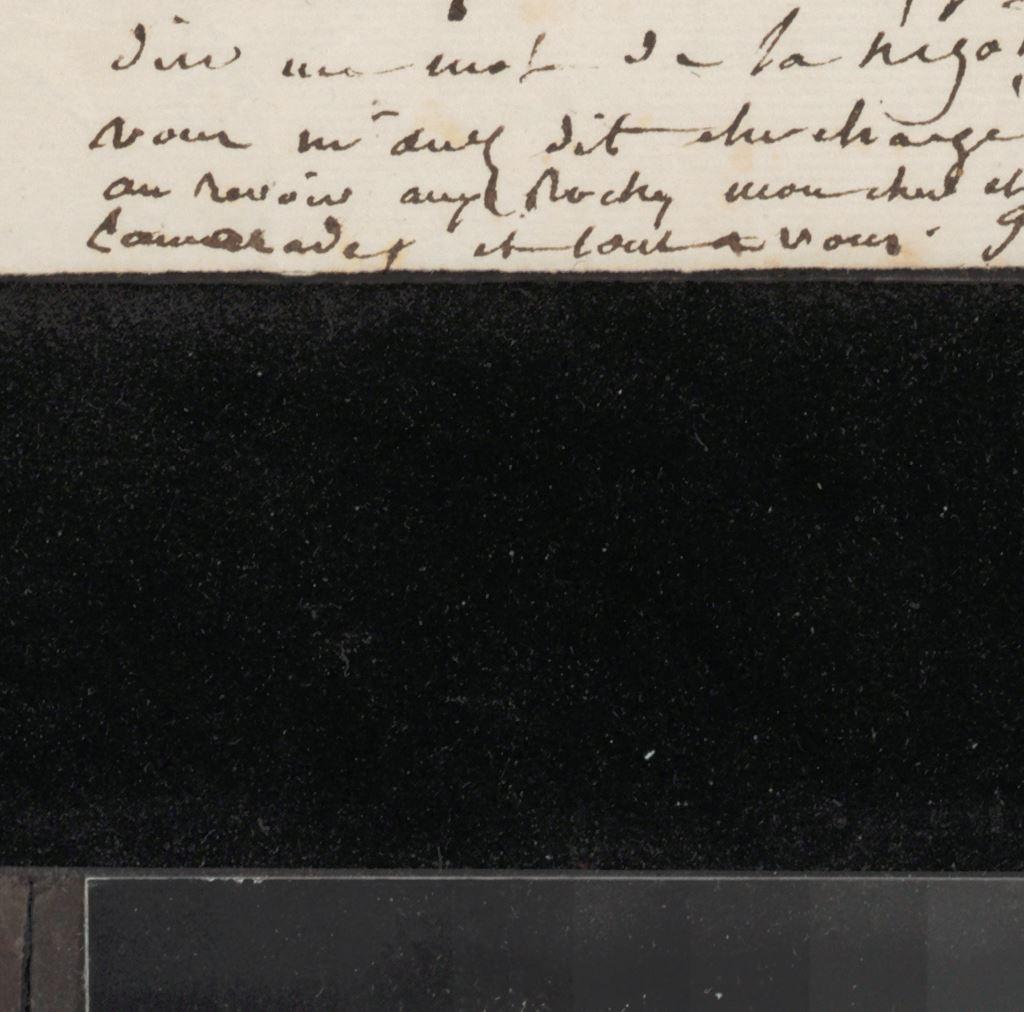 dire un mot de la négo
vous m'avez dit être chargé
au revoir aux Rochy mon cher et
Camarades et tout a vous.